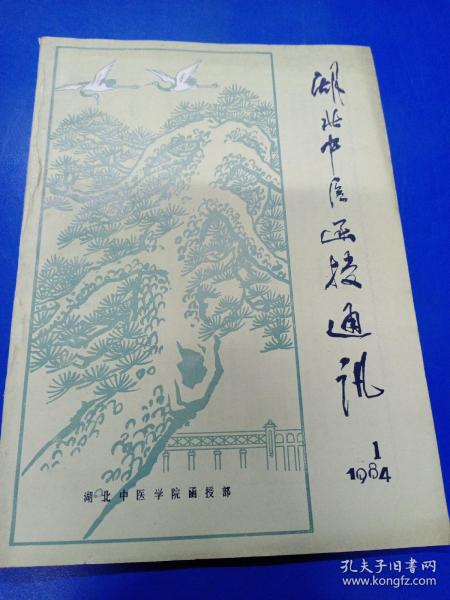 湖北中医函授通讯
1
1984
湖北中医学院函授部
孔夫子旧书网
www.kongfz.com